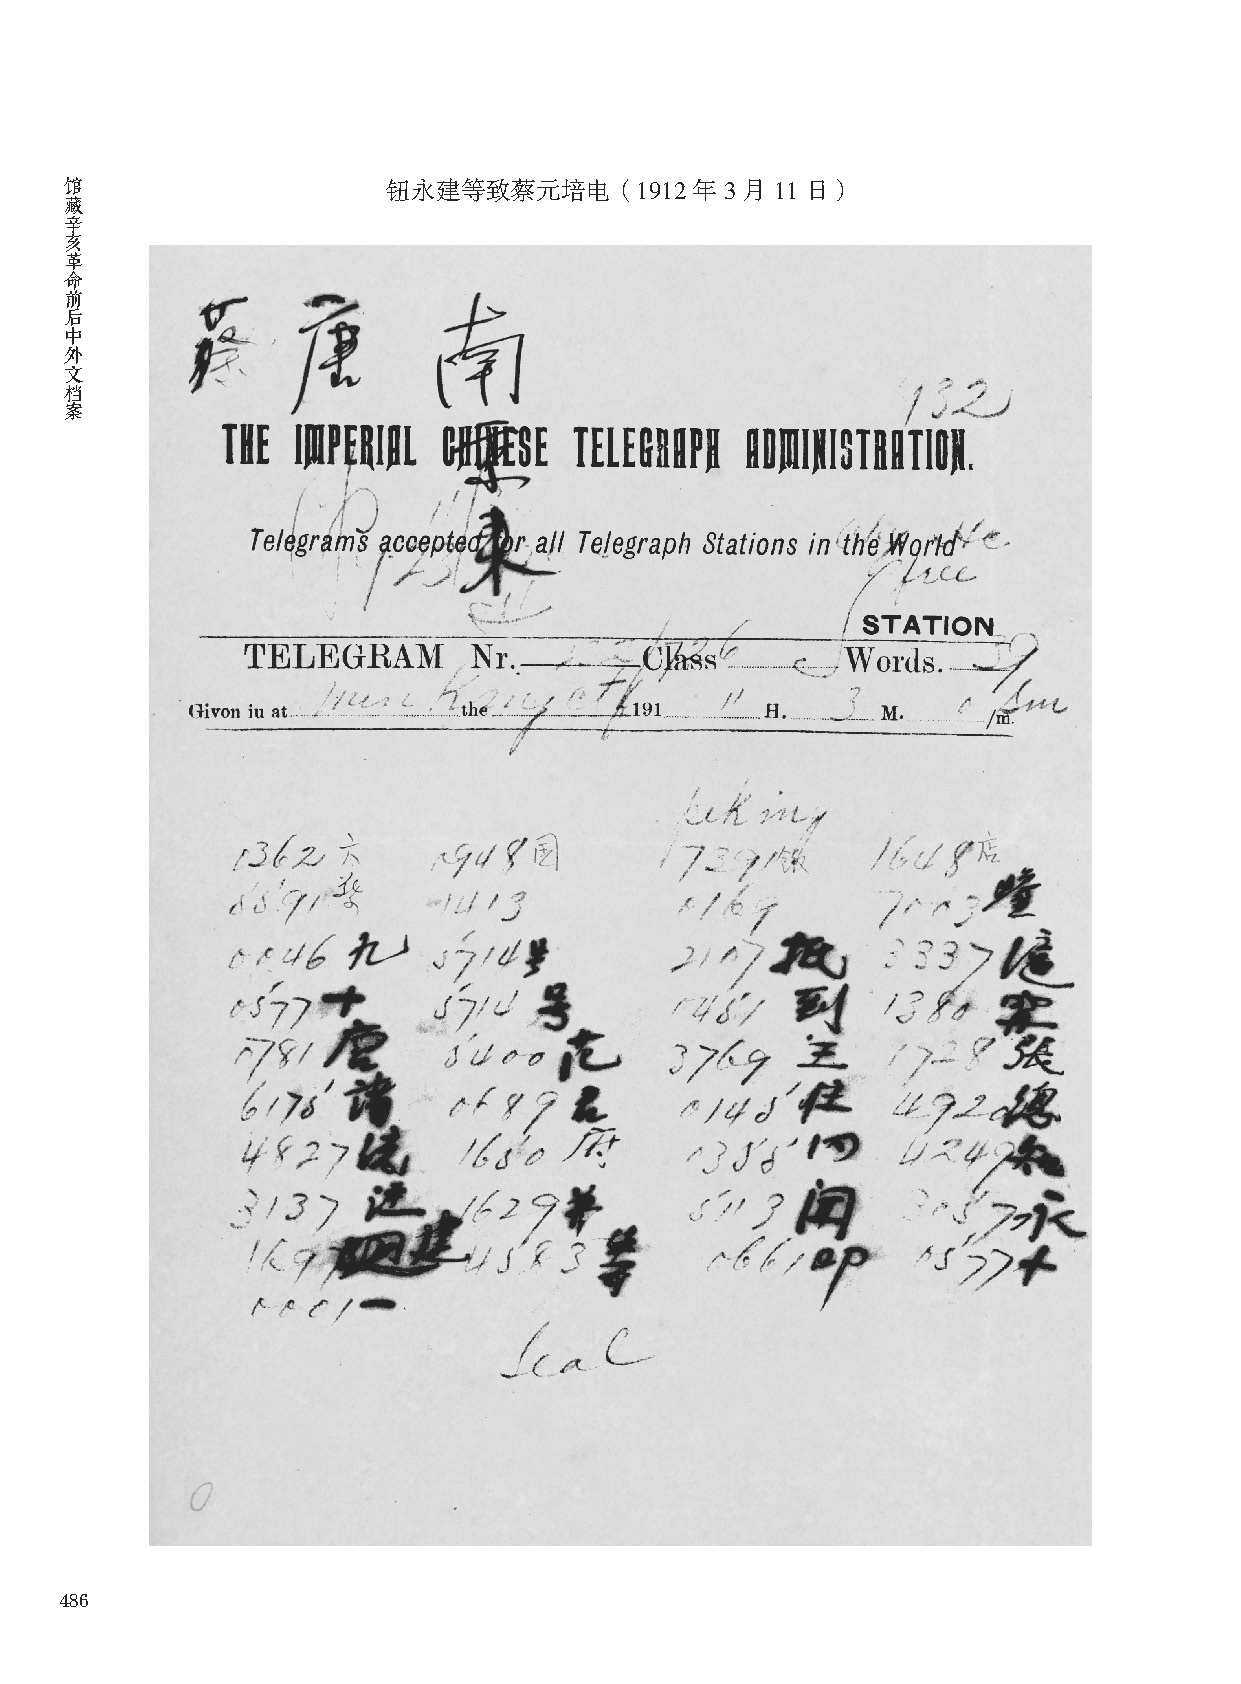 馆藏辛亥革命前后中外文档案
钮永建等致蔡元培电（1912 年 3 月 11 日）
蔡 唐 南
京
東
132
THE IMPERIAL CHINESE TELEGRAPH ADMINISTRATION.
Telegrams accepted for all Telegraph Stations in the World
free
STATION
TELEGRAM Nr. Class Words. 39
Givon iu at the 191 11 H. 3 M. 0 /m.
peking
1362 六 0948 国 1739 飯 1648 店
5591 蔡 1413 0169 7003
0046 九 5714 号 2107 抵 3337 滬
0577 十 5714 号 1451 到 1380 寧
0781 唐 5400 范 3769 王 1728 張
6175 諸 0689 君 0145 住 4920 德
4827 統 1650 府 1355 4249
3137 进 1629 并 5113 闻 3057 永
1697 建 4583 等 0661 印 0577 十
0001 一
Seal
0
486